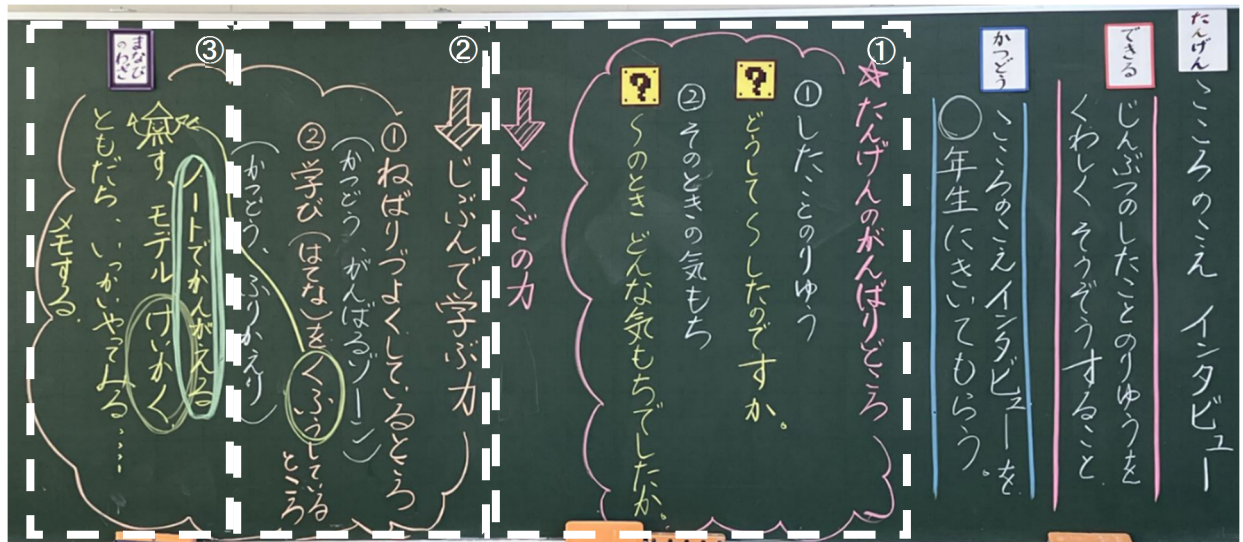 たんげん こころのこえ インタビュー
できる
じんぶつのしたことのりゆうを
くわしく そうぞうすること
かつどう
こころのこえ インタビューを
○年生にきいてもらう。
①
☆たんげんのがんばりどころ
①したことのりゆう
? どうして〜したのですか。
②そのときの気もち
? 〜のとき どんな気もちでしたか。
こくごの力
②
じぶんで学ぶ力
①ねばりづよくしているところ
(かつどう、がんばるゾーン)
②学び(はてな)をくふうしているところ
(かつどう、ふりかえり)
③
まなびのわざ
ノートでかんがえる
す、モデル けいかく
ともだち、いっかいやってみる……
メモする.